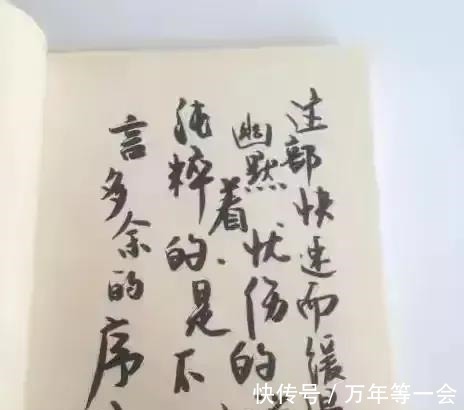 这部快速而缓
幽默着忧伤的
纯粹的是不
言多余的序
快传号／万年等一会